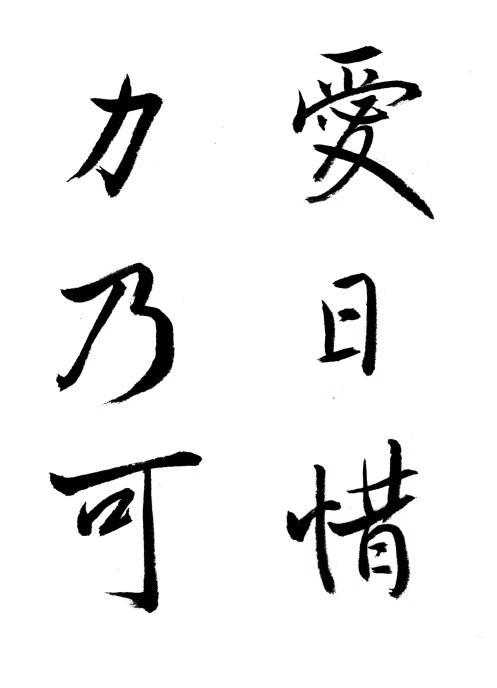 愛日惜
力乃可